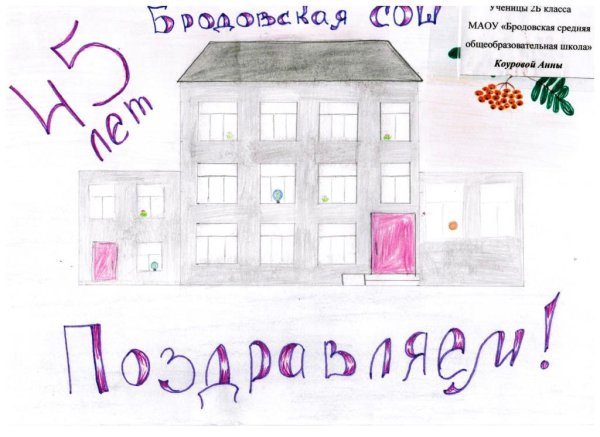 Бродовская СОШ
45
лет
Ученицы 2Б класса
МАОУ «Бродовская средняя
общеобразовательная школа»
Коуровой Анны
Поздравляем!